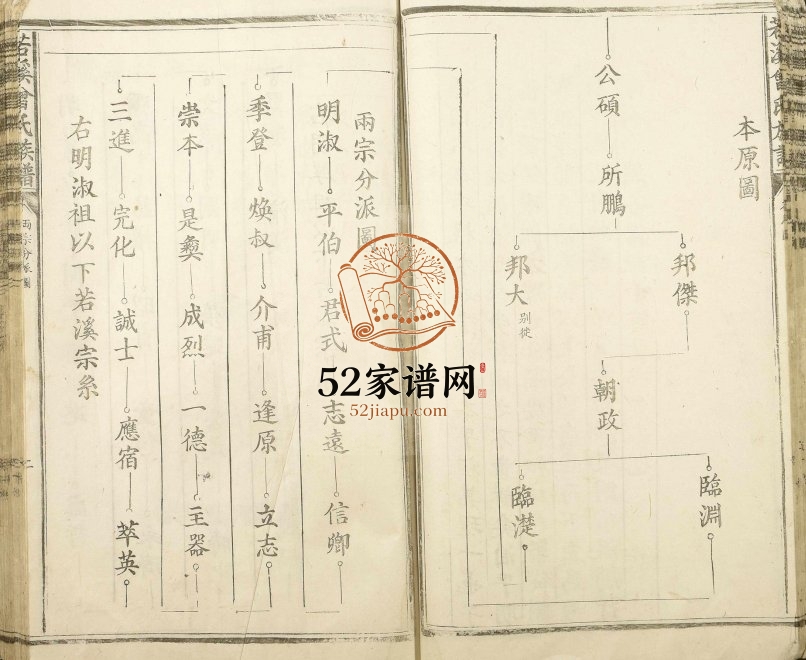 本原圖
公碩
所鵬
邦傑
邦大 别徙
朝政
臨淵
臨濋
兩宗分派圖
明淑 平伯 君式 志遠 信卿
季登 煥叔 介甫 逢原 立志
崇本 是彝 成烈 一德 主器
三進 完化 誠士 應宿 萃英
右明淑祖以下若溪宗系
若溪曾氏族譜
兩宗分派圖
52家谱网
52jiapu.com